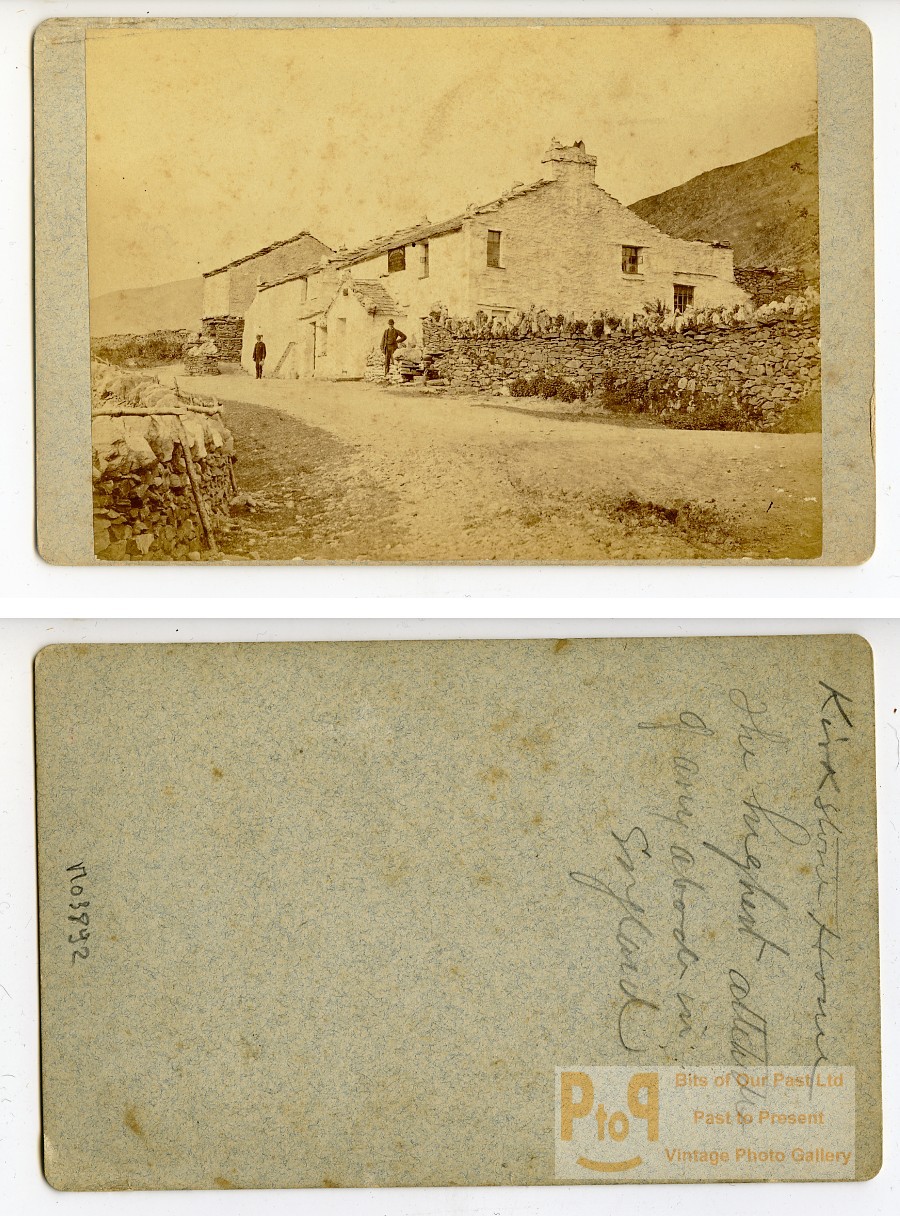 Kirkstone House
The highest altitude
of any abode in
England
1703892
PtoP
Bits of Our Past Ltd
Past to Present
Vintage Photo Gallery